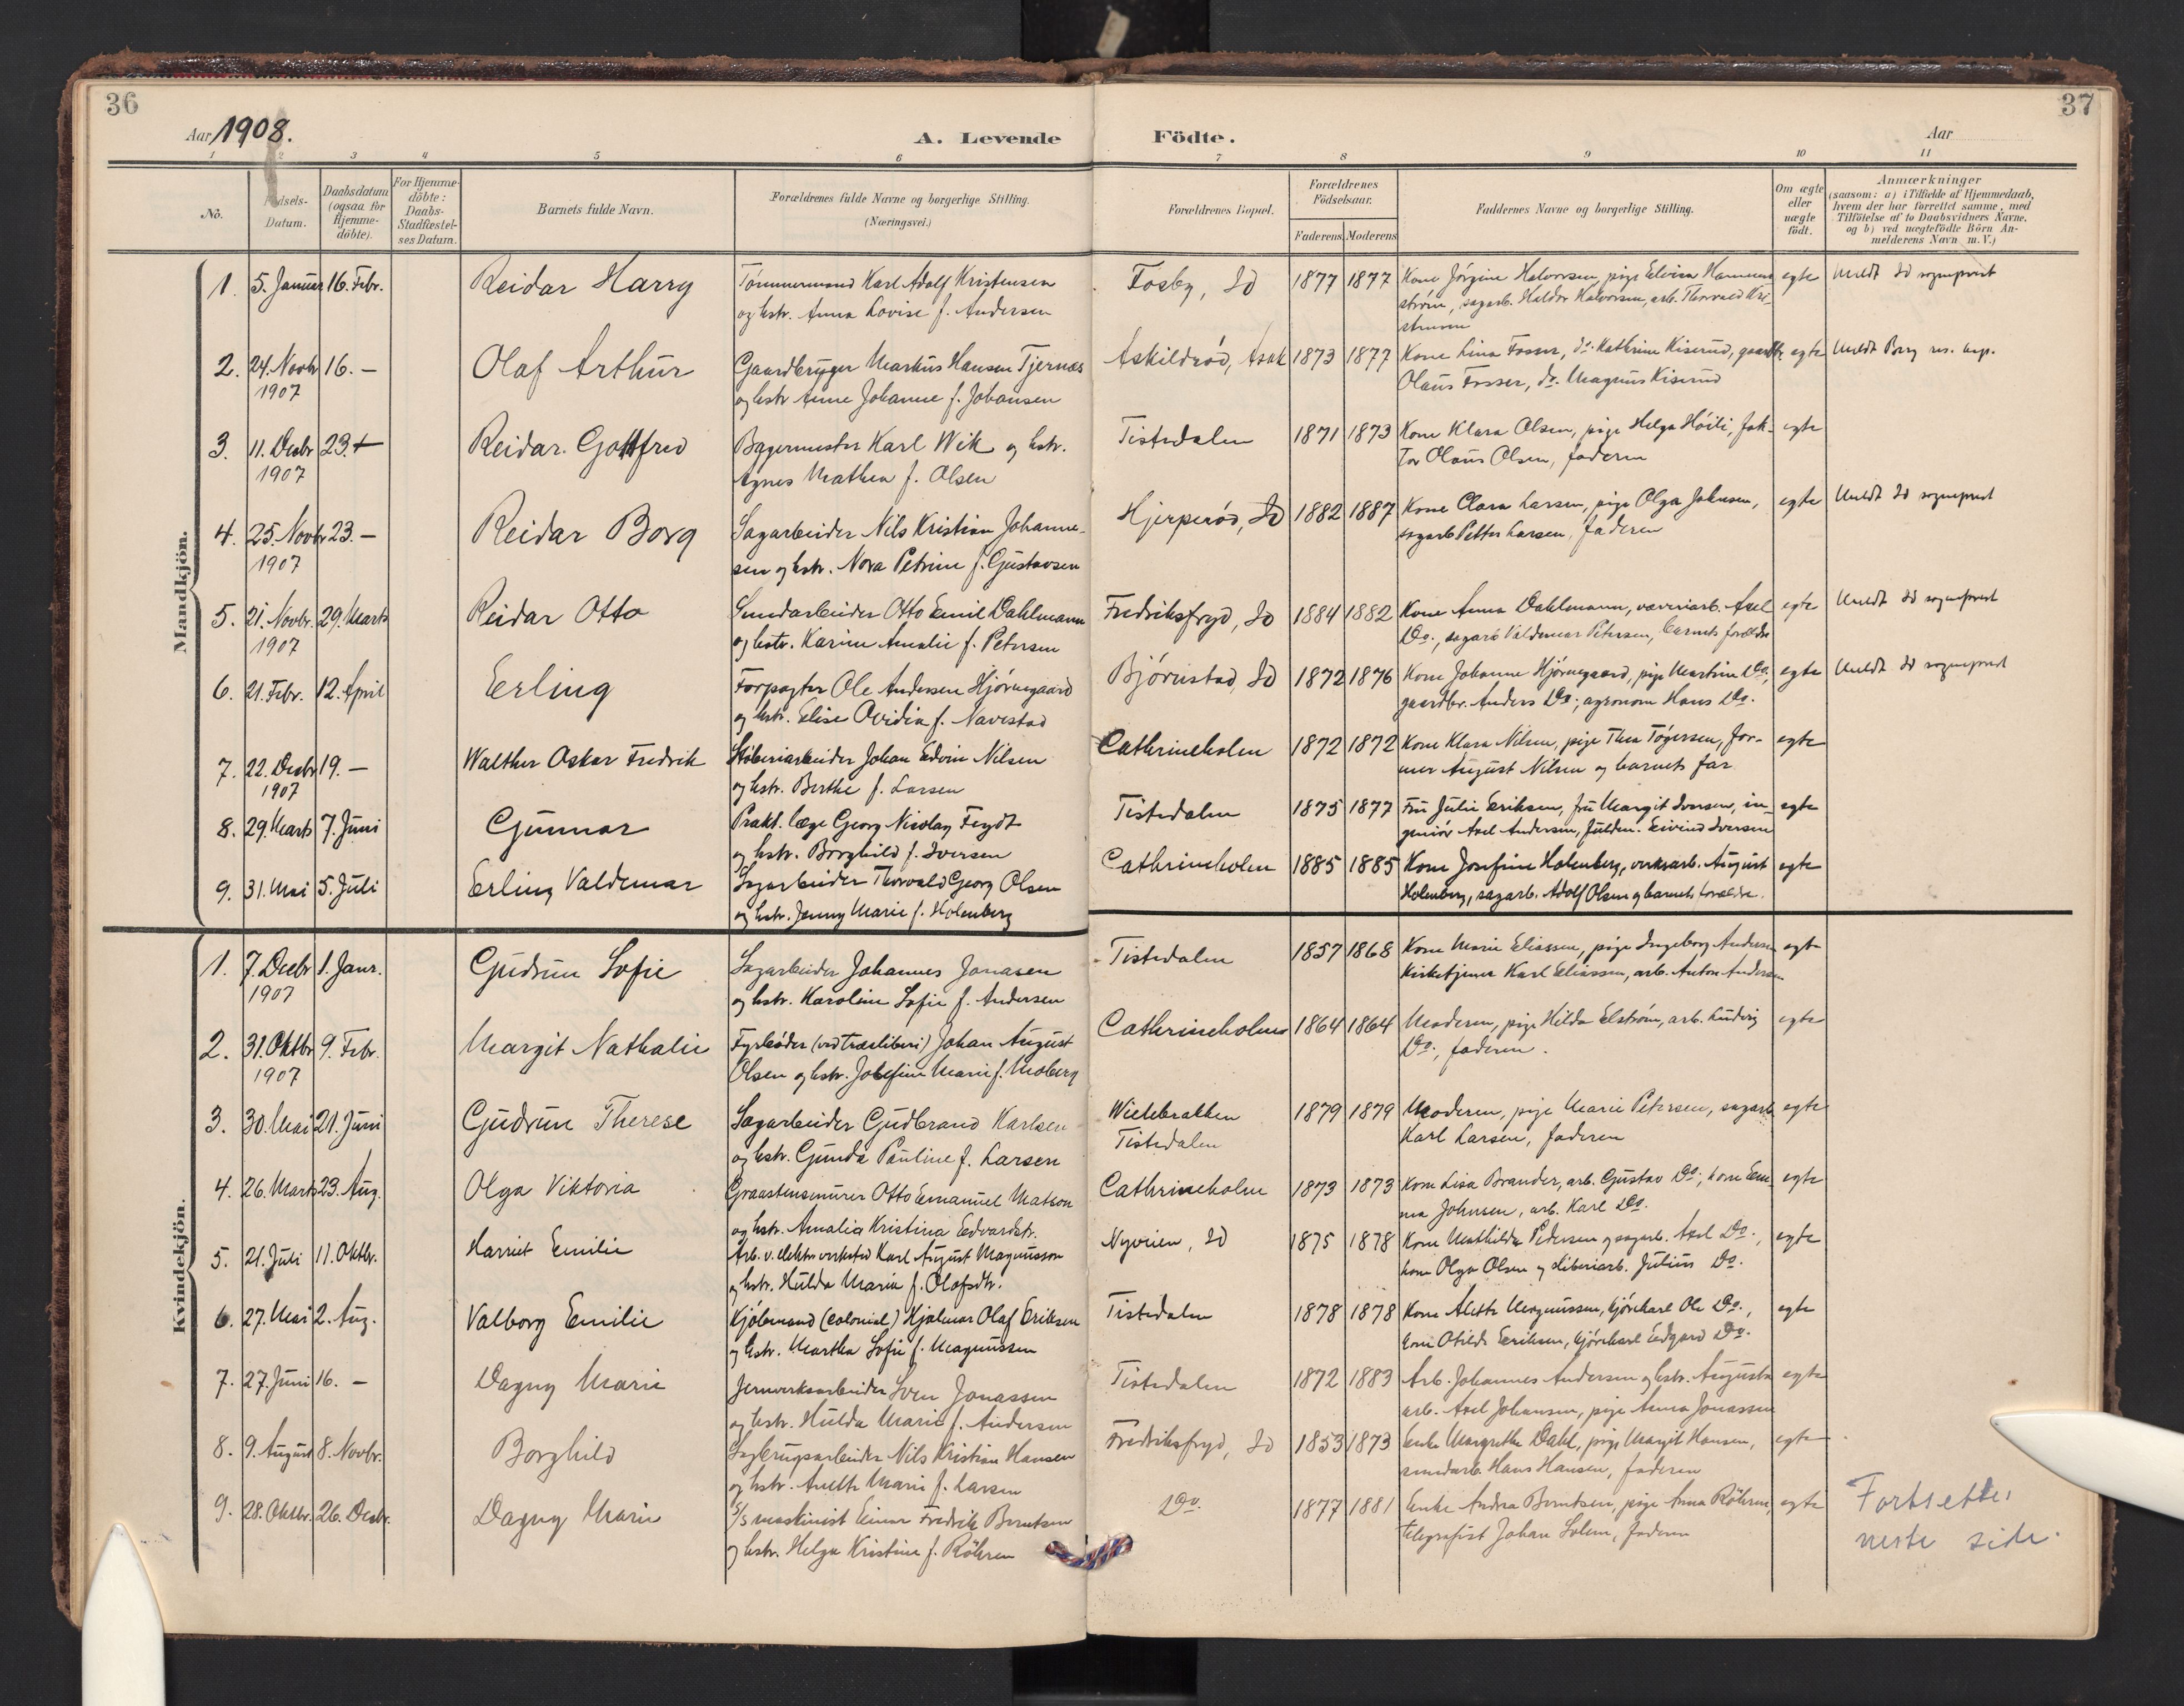 36
37
Aar 1908.
A. Levende Födte.
Aar
1 2 3 4 5 6 7 8 9 10 11
No.
Födsels-
Datum.
Daabsdatum
(ogsaa for
Hjemme-
döbte).
For Hjemme-
döbte:
Daabs-
Stadfæstel-
ses Datum.
Barnets fulde Navn.
Forældrenes fulde Navne og borgerlige Stilling.
(Næringsvei.)
Forældrenes Bopæl.
Forældrenes
Födselsaar.
Faderens Moderens
Faddernes Navne og borgerlige Stilling.
Om ægte
eller
uægte
födt.
Anmærkninger
(saasom: a) i Tilfælde af Hjemmedaab,
hvem der har forrettet samme, med
Tilföielse af to Daabsvidners Navne.
og b) ved uægtefödte Börn An-
melderens Navn m. V.)
Mandkjön.
1. 5. Januar 16. Febr. Reidar Harry Tømmermand Karl Adolf Kristensen Fosby, Id 1877 1877 Kone Jörgine Halvorsen, pige Elvina Hammer- egte Meldt Id sogneprest
og hstr. Anna Lovise f. Andersen ström, sagarb. Haldor Halvorsen, arb. Thorvald Kri-
stensen
2. 24. Novbr 16. — Olaf Arthur Gaardbruger Markus Hansen Tjernæs Askildröd, Asak 1873 1877 Kone Lina Fosser, do. Kathrine Kiserud, gaardbr. egte Meldt Berg res. kap.
1907 og hstr Anne Johanne f. Johansen Olaus Fosser, do. Magnus Kiserud
3. 11. Decbr 23. — Reidar Gottfred Bagermester Karl Wik og hstr. Tistedalen 1871 1873 Kone Klara Olsen, pige Helga Höili, fak- egte
1907 Agnes Mathea f. Olsen tor Olaus Olsen, faderen
4. 25. Novbr 23. — Reidar Borg Sagarbeider Nils Kristian Johanne- Hjerperöd, Id 1882 1887 Kone Clara Larsen, pige Olga Johnsen, egte Meldt Id sogneprest
1907 sen og hstr. Nora Petrine f. Gustavsen sagarb Petter Larsen, faderen
5. 21. Novbr. 29. Marts Reidar Otto Smedarbeider Otto Emil Dahlmann Fredriksfryd, Id 1884 1882 Kone Anna Dahlmann, væveriarb. Axel egte Meldt Id sogneprest
1907 og hstr. Karine Amalie f. Petersen Do., sagarb Valdemar Petersen, barnets forældre
6. 21. Febr. 12. April Erling Forpagter Ole Andersen Hjörnegaard Björnstad, Id 1872 1876 Kone Johanne Hjörnegaard, pige Martine Do., egte Meldt Id sogneprest
og hstr. Elise Ovidia f. Navestad gaardbr. Anders Do., agronom Hans Do.
7. 22. Decbr 19. — Walther Oskar Fredrik Stöberiarbeider Johan Edvin Nilsen Cathrineholm 1872 1872 Kone Klara Nilsen, pige Thea Tögersen, for- egte
1907 og hstr. Berthe f. Larsen mer August Nilsen og barnets far
8. 29. Marts 7. Juni Gunnar Prakt. læge Georg Nicolay Feydt Tistedalen 1875 1877 Fru Julie Eriksen, fru Margit Iversen, in- egte
og hstr. Borghild f. Iversen geniör Axel Andersen, fuldm. Eivind Iversen
9. 31. Mai 5. Juli Erling Valdemar Sagarbeider Thorvald Georg Olsen Cathrineholm 1885 1885 Kone Josefine Holenberg, verksarb. August egte
og hstr. Jenny Marie f. Holenberg Holenberg, sagarb. Adolf Olsen og barnets forældre.
Kvindekjön.
1. 7. Decbr 1. Janr. Gudrun Sofie Sagarbeider Johannes Jonasen Tistedalen 1857 1868 Kone Marie Eliassen, pige Ingeborg Andersen egte
1907 og hstr. Karoline Sofie f. Andersen kirketjener Karl Eliassen, arb. Anton Andersen
2. 31. Oktbr 9. Febr. Margit Nathalie Fyrböder (ved træsliberi) Johan August Cathrineholm 1864 1864 Moderen, pige Hilda Elström, arb. Ludvig egte
1907 Olsen og hstr. Josefine Marie f. Moberg Do., faderen.
3. 30. Mai 21. Juni Gudrun Therese Sagarbeider Gudbrand Karlsen Wielebakken 1879 1879 Moderen, pige Marie Petersen, sagarb. egte
og hstr. Gunda Pauline f. Larsen Tistedalen Karl Larsen, faderen
4. 26. Marts 23. Aug. Olga Viktoria Graastensmurer Otto Emanuel Matson Cathrineholm 1873 1873 Kone Lisa Brander, arb. Gustav Do., kone Em- egte
og hstr. Amalia Kristina Edvardstr. ma Johnsen, arb. Karl Do.
5. 21. Juli 11. Oktbr. Harriet Emilie Arb. v. elektr. verksted Karl August Magnusson Nyveien, Id 1875 1878 Kone Mathilda Pedersen og sagarb. Axel Do., egte
og hstr. Hulda Maria f. Olofsdtr. kone Olga Olsen og sliberiarb. Julius Do.
6. 27. Mai 2. Aug. Valborg Emilie Kjöbmand (colonial) Hjalmar Olaf Eriksen Tistedalen 1878 1878 Kone Alette Magnussen, kjörekarl Ole Do., egte
og hstr. Martha Sofie f. Magnussen kone Otilde Eriksen, kjörekarl Edgard Do.
7. 27. Juni 16. — Dagny Marie Jernverksarbeider Sven Jonassen Tistedalen 1872 1883 Arb. Johannes Andersen og hstr. Augusta egte
og hstr. Hulda Marie f. Andersen arb. Axel Johansen, pige Anna Jonassen
8. 9. August 8. Novbr. Borghild Sagbrugsarbeider Nils Kristian Hansen Fredriksfryd, Id 1853 1873 Enke Margrethe Dahl, pige Margit Hansen, egte
og hstr. Anette Marie f. Larsen smedarb. Hans Hansen, faderen
9. 28. Oktbr. 26. Decbr. Dagny Marie S/S maskinist Einar Fredrik Berntsen Do. 1877 1881 Enke Andrea Berntsen, pige Anna Röhren, egte
og hstr. Helga Kristine f. Röhren telegrafist Johan Solem, faderen
Fortsettes
neste side.